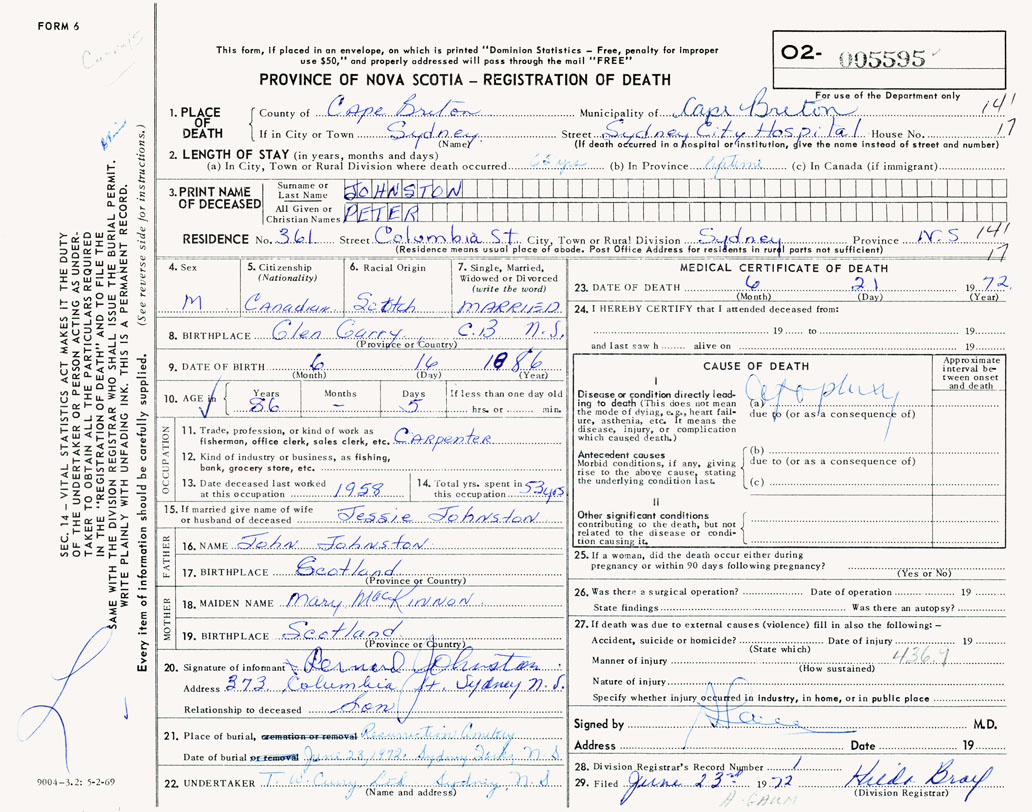 FORM 6
This form, if placed in an envelope, on which is printed "Dominion Statistics – Free, penalty for improper
use $50," and properly addressed will pass through the mail "FREE"
PROVINCE OF NOVA SCOTIA – REGISTRATION OF DEATH
O2- 005595
For use of the Department only
SEC. 14 – VITAL STATISTICS ACT MAKES IT THE DUTY
OF THE UNDERTAKER OR PERSON ACTING AS UNDER-
TAKER TO OBTAIN ALL THE PARTICULARS REQUIRED
IN THE "REGISTRATION OF DEATH" AND TO FILE THE
SAME WITH THE DIVISION REGISTRAR WHO SHALL ISSUE THE BURIAL PERMIT.
WRITE PLAINLY WITH UNFADING INK. THIS IS A PERMANENT RECORD.
Every item of information should be carefully supplied. (See reverse side for instructions.)
1. PLACE OF DEATH
County of Cape Breton Municipality of Cape Breton 141
If in City or Town Sydney Street Sydney City Hospital House No. 17
(Name) (If death occurred in a hospital or institution, give the name instead of street and number)
2. LENGTH OF STAY (in years, months and days)
(a) In City, Town or Rural Division where death occurred yrs (b) In Province (c) In Canada (if immigrant)
3. PRINT NAME OF DECEASED
Surname or Last Name JOHNSTON
All Given or Christian Names PETER
RESIDENCE No. 361 Street Columbia St City, Town or Rural Division Sydney Province N.S 141
(Residence means usual place of abode. Post Office Address for residents in rural parts not sufficient) 17
4. Sex M
5. Citizenship (Nationality) Canadian
6. Racial Origin Scotch
7. Single, Married, Widowed or Divorced (write the word) MARRIED
8. BIRTHPLACE Glen Garry C.B N.S.
(Province or Country)
9. DATE OF BIRTH 6 16 1886
(Month) (Day) (Year)
10. AGE in Years 86 Months – Days 5 If less than one day old hrs. or min.
OCCUPATION
11. Trade, profession, or kind of work as
fisherman, office clerk, sales clerk, etc. Carpenter
12. Kind of industry or business, as fishing,
bank, grocery store, etc.
13. Date deceased last worked at this occupation 1958
14. Total yrs. spent in this occupation 53 yrs
15. If married give name of wife or husband of deceased Jessie Johnston
FATHER
16. NAME John Johnston
17. BIRTHPLACE Scotland
(Province or Country)
MOTHER
18. MAIDEN NAME Mary MacKinnon
19. BIRTHPLACE Scotland
(Province or Country)
20. Signature of informant Bernard Johnston
Address 373 Columbia St. Sydney N.S.
Relationship to deceased Son
21. Place of burial, cremation or removal Resurrection Cemetery
Date of burial or removal June 23, 1972 Sydney N.S
22. UNDERTAKER T. W. Curry Ltd Sydney, N.S
(Name and address)
9004–3.2: 5-2-69
MEDICAL CERTIFICATE OF DEATH
23. DATE OF DEATH 6 21 1972
(Month) (Day) (Year)
24. I HEREBY CERTIFY that I attended deceased from:
19 to 19
and last saw h alive on 19
CAUSE OF DEATH
Approximate interval between onset and death
I
Disease or condition directly lead-
ing to death (This does not mean
the mode of dying, e.g., heart fail-
ure, asthenia, etc. It means the
disease, injury, or complication
which caused death.)
(a)
due to (or as a consequence of)
Antecedent causes
Morbid conditions, if any, giving
rise to the above cause, stating
the underlying condition last.
(b)
due to (or as a consequence of)
(c)
II
Other significant conditions
contributing to the death, but not
related to the disease or condi-
tion causing it.
25. If a woman, did the death occur either during
pregnancy or within 90 days following pregnancy?
(Yes or No)
26. Was there a surgical operation? Date of operation 19
State findings Was there an autopsy?
27. If death was due to external causes (violence) fill in also the following: –
Accident, suicide or homicide? Date of injury 19
(State which) 436.9
Manner of injury
(How sustained)
Nature of injury
Specify whether injury occurred in industry, in home, or in public place
Signed by M.D.
Address Date 19
28. Division Registrar's Record Number 1
29. Filed June 23rd 1972 Hilda Bray
(Division Registrar)